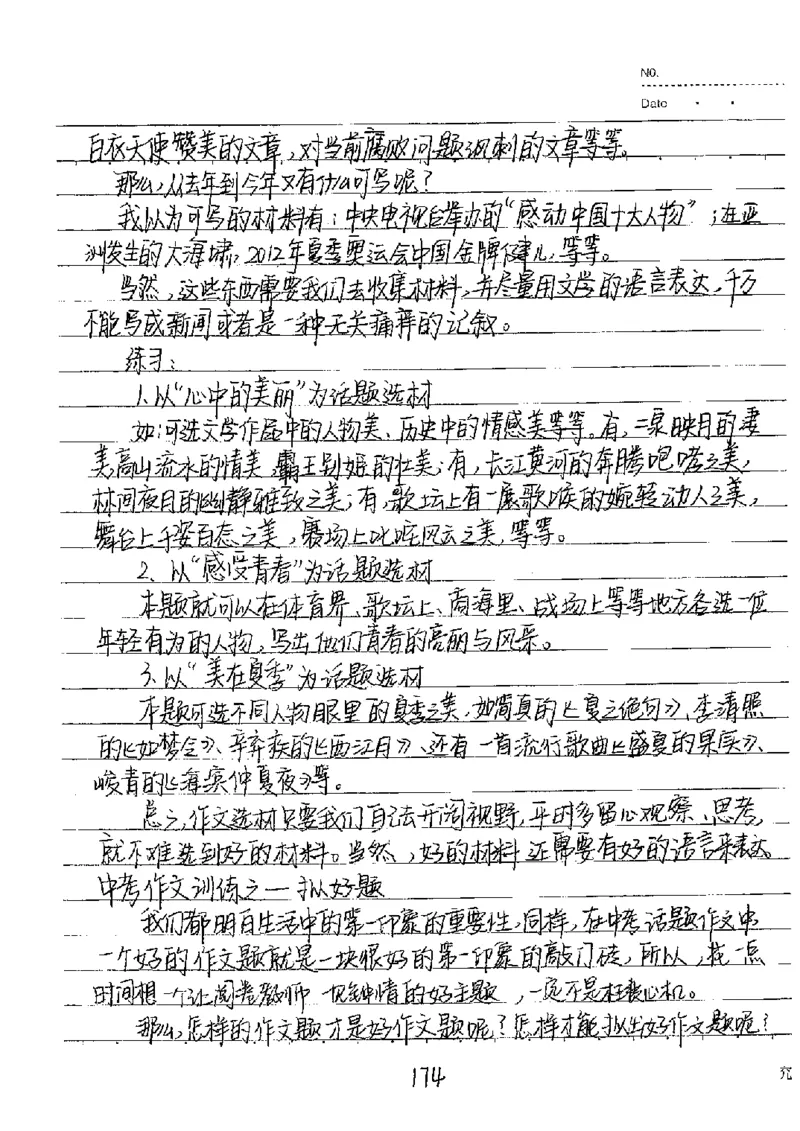 NO.
Date
白衣天使赞美的文章，对当前腐败问题讽刺的文章等等。
那么，从去年到今年又有什么可写呢？
我以为可写的材料有：中央电视台举办的“感动中国十大人物”；在亚
洲发生的大海啸，2012年夏季奥运会中国金牌健儿，等等。
当然，这些东西需要我们去收集材料，并尽量用文学的语言表达，千万
不能写成新闻或者是一种无关痛痒的记叙。
练习：
1、以“心中的美丽”为话题选材
如：可选文学作品中的人物美、历史中的情感美等等。有，二泉映月的凄
美，高山流水的情美，霸王别姬的壮美；有，长江黄河的奔腾咆哮之美，
林间夜月的幽静雅致之美；有，歌坛上有一展歌喉的婉转动人之美，
舞台上千姿百态之美，赛场上叱咤风云之美，等等。
2、以“感受青春”为话题选材
本题就可以在体育界、歌坛上、商海里、战场上等等地方各选一位
年轻有为的人物，写出他们青春的亮丽与风采。
3、以“美在夏季”为话题选材
本题可选不同人物眼里的夏季之美，如简真的《夏之绝句》、李清照
的《如梦令》、辛弃疾的《西江月》、还有一首流行歌曲《盛夏的果实》、
峻青的《海滨仲夏夜》等。
总之，作文选材只要我们自己去开阔视野，平时多留心观察、思考，
就不难选到好的材料。当然，好的材料还需要有好的语言来表达。
中考作文训练之一 拟好题
我们都明白生活中的第一印象的重要性，同样，在中考话题作文中
一个好的作文题就是一块很好的第一印象的敲门砖，所以，花一点
时间想一个让阅卷教师一见钟情的好主题，一定不是枉费心机。
那么，怎样的作文题才是好作文题呢？怎样才能拟出好作文题呢？
174
究